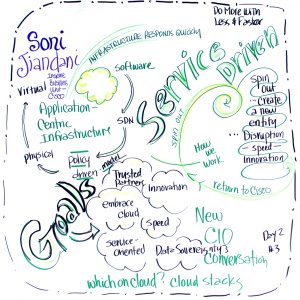 Do More with
Less & Faster
Soni
Jiandani
INFRASTRUCTURE RESPONDS QUICKLY
Software
Virtual
Application
Centric
Infrastructure
SDN
Physical
Policy
driven
model
Service
Driven
SPIN OUT
Spin
Out
Create
a new
Entity
Disruption
Speed
Innovation
How
we
Work
return to Cisco
Goals
Trusted
Partner
Innovation
embrace
cloud
Speed
Service-
oriented
Data Sovereignty
New
CIO
Conversation
Day 2
#3
which on cloud? cloud stacks